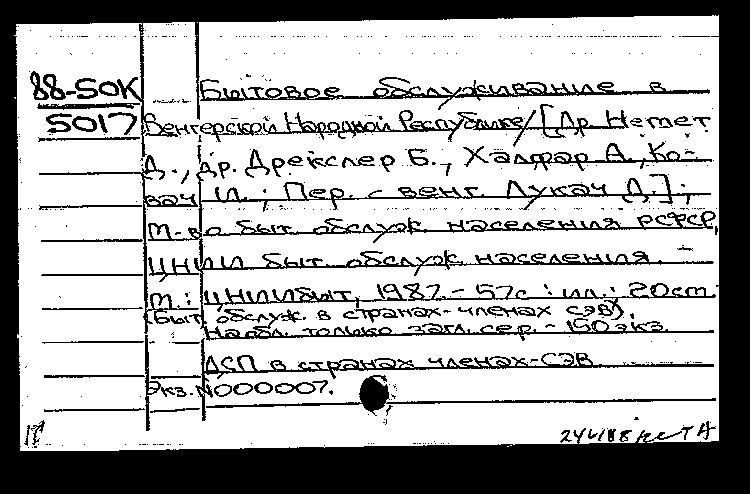 88-50К Бытовое обслуживание в
5017 Венгерской Народной Республике/[Др. Немет
Д., др. Дрекслер Б., Халфар А., Ко-
вач И.; Пер. с венг. Лукач Д.];
М-во быт. обслуж. населения РСФСР,
ЦНИИ быт. обслуж. населения. -
М.: ЦНИИбыт, 1987. - 57с : ил.; 20см.
(Быт. обслуж. в странах-членах СЭВ).
На обл. только загл. сер. - 150 экз.
ДСП в странах членах-СЭВ
Экз. N000007.